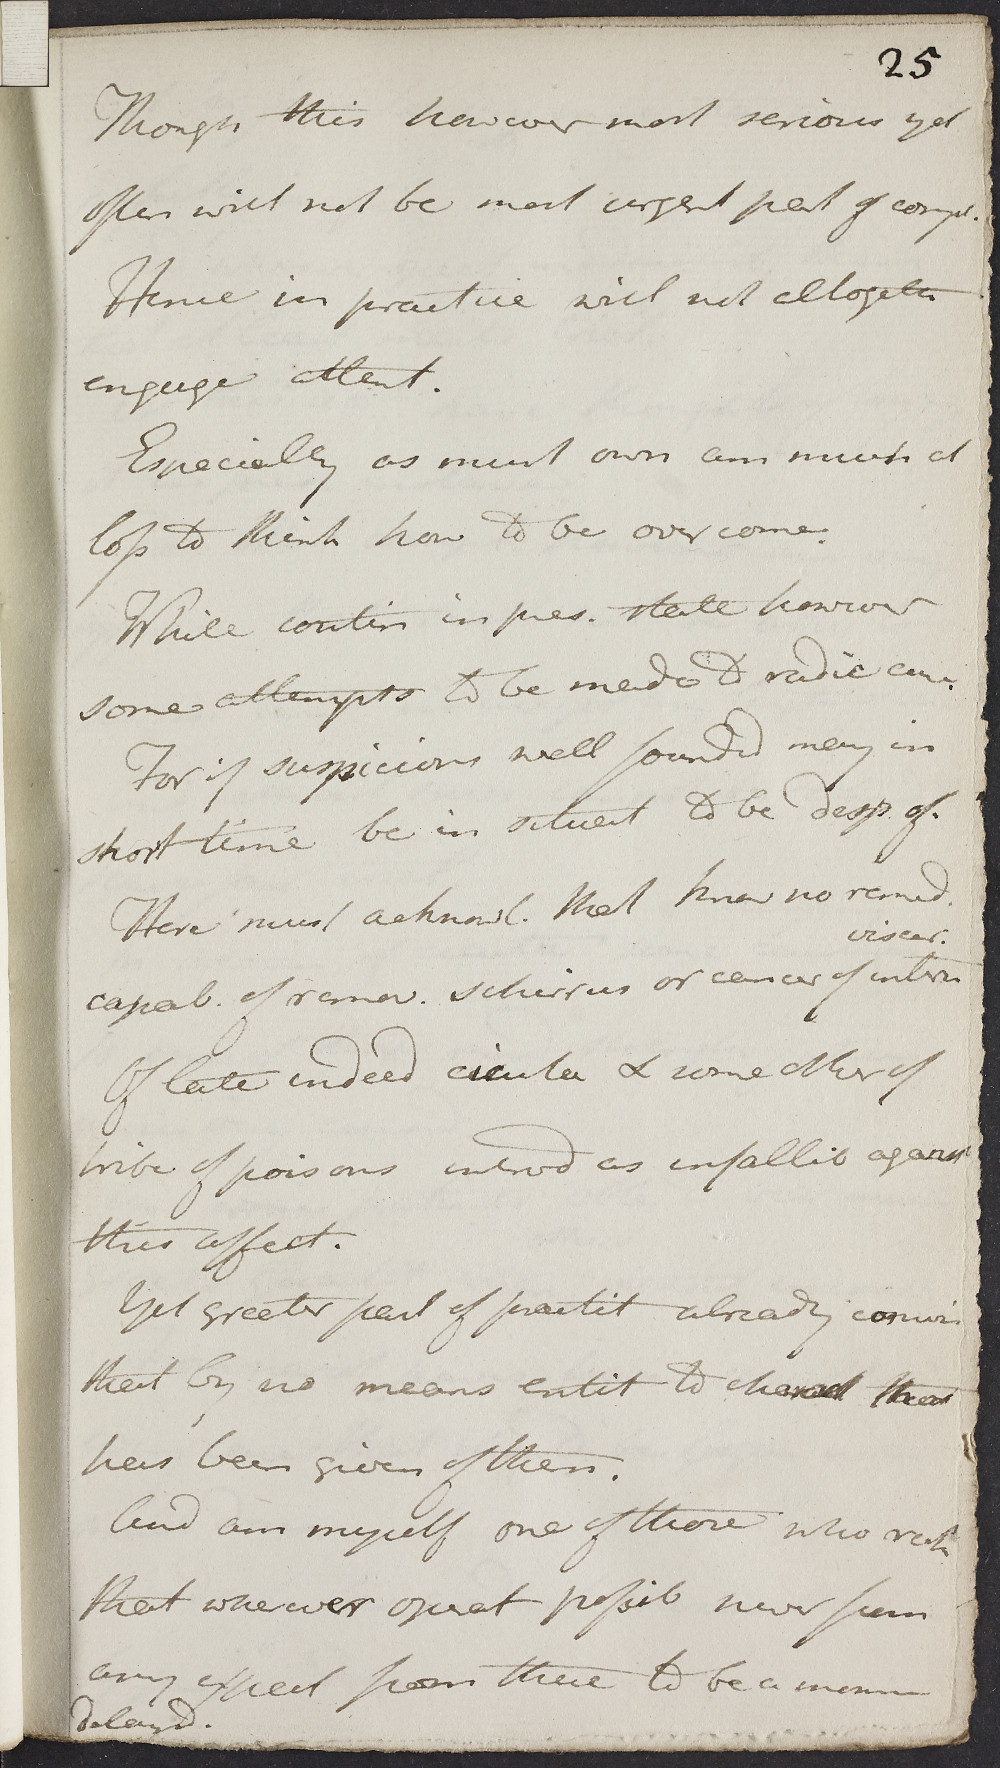 25
Though this however most serious yet
often will not be most urgent part of compl.
Hence in practice will not altogeth
engage attent.
Especially as must own am much at
loss to think how to be overcome.
While contin in pres. state however
some attempts to be made to radic cur.
For if suspicions well founded may in
short time be in situat to be desp. of.
Here must acknowl. that know no remed.
viscer.
capab. of remov. schirrus or cancer of intern
Of late indeed cicuta & some other of
tribe of poisons introd as infallib against
this affect.
Yet greater part of practit already convin
that by no means entit to charact that
has been given of them.
And am myself one of those who reck
that wherever operat possib never from
any expect from these to be a momen
delayd.